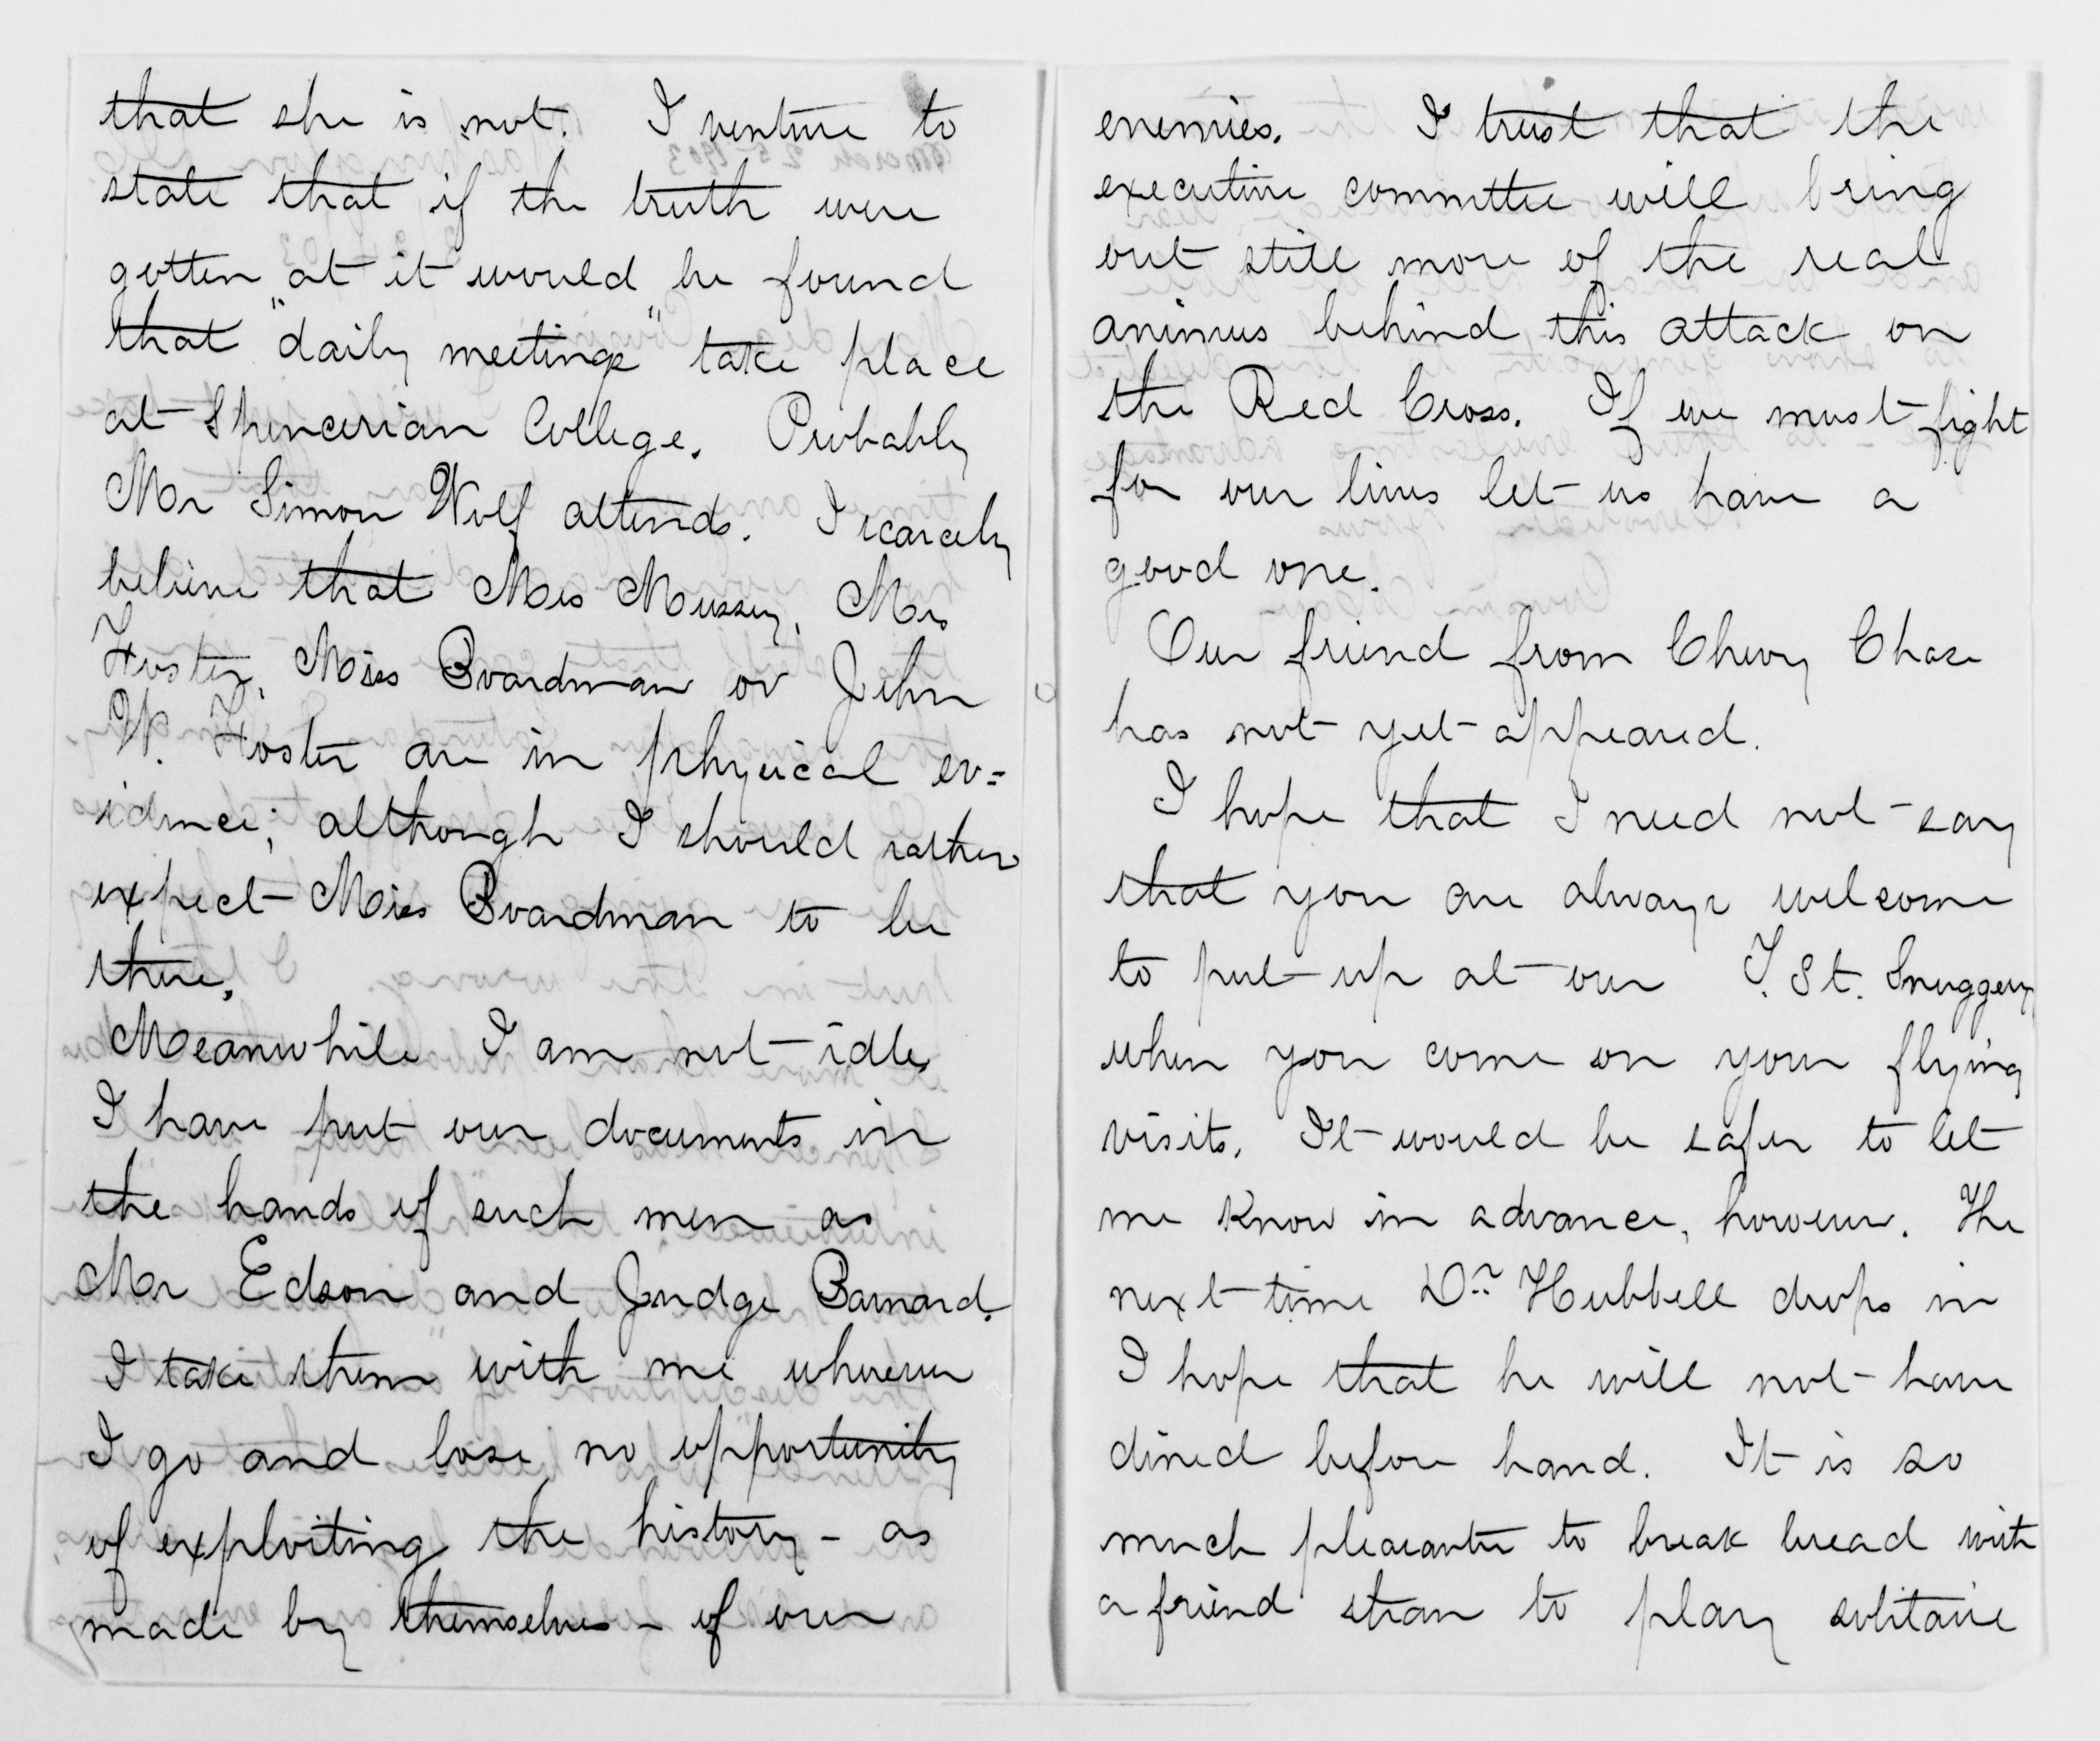 that she is not. I venture to
state that if the truth were
gotten at it would be found
that "daily meetings" take place
at Spencerian College. Probably
Mr Simon Wolf attends. I scarcely
believe that Mrs Mussey, Mrs
Foster, Miss Boardman or John
W. Foster are in physical ev=
idence; although I should rather
expect Miss Boardman to be
there.
Meanwhile I am not idle,
I have put our documents in
the hands of such men as
Mr Edson and Judge Barnard.
I take them with me wherever
I go and lose no opportunity
of exploiting the history - as
made by themselves - of our
enemies. I trust that the
executive committee will bring
out still more of the real
animus behind this attack on
the Red Cross. If we must fight
for our lives let us have a
good one.
Our friend from Chevy Chase
has not yet appeared.
I hope that I need not say
that you are always welcome
to put up at our T. St. Snuggery
when you come on your flying
visits. It would be safer to let
me know in advance, however. The
next time Dr. Hubbell drops in
I hope that he will not have
dined before hand. It is so
much pleasanter to break bread with
a friend than to play solitaire